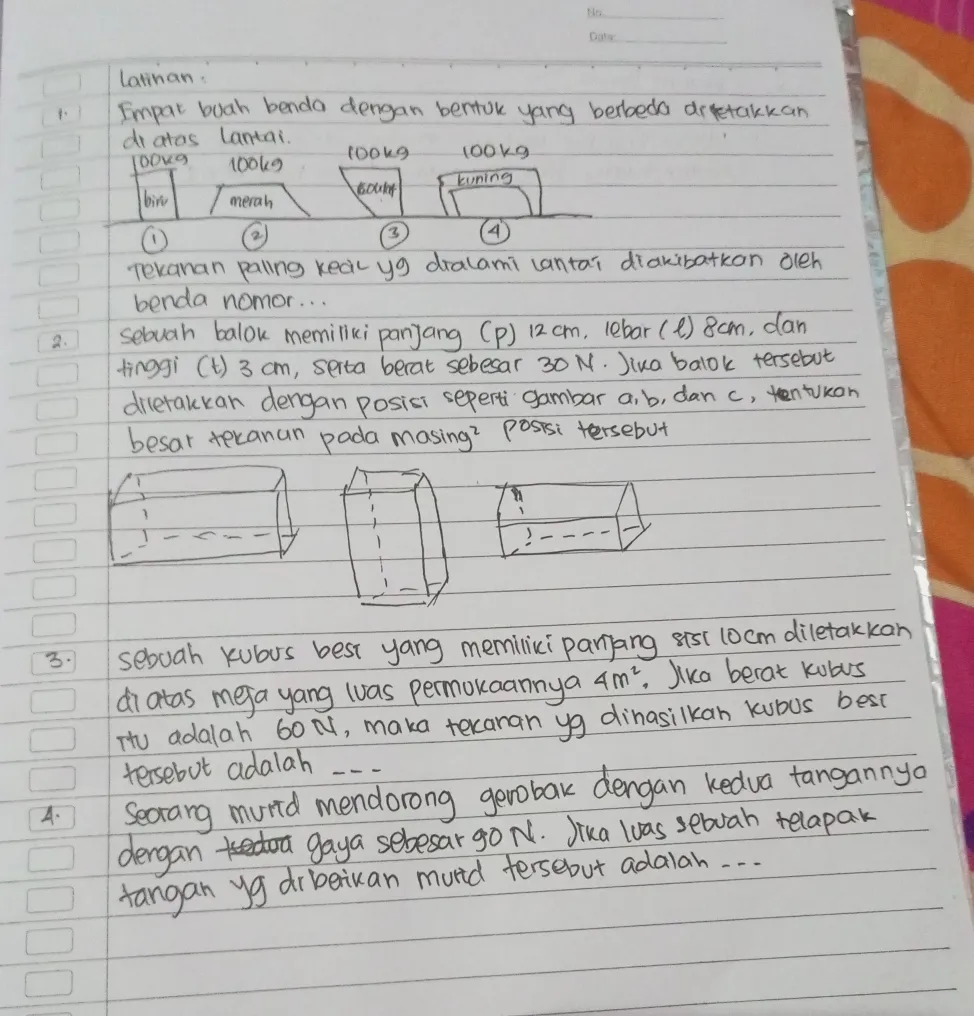 No.
Date:
Latihan :
1. Empat buah benda dengan bentuk yang berbeda diletakkan
di atas lantai.
100kg 100kg 100kg 100kg
biru merah kuning
1 2 3 4
Tekanan paling kecil yg dialami lantai diakibatkan oleh
benda nomor...
2. Sebuah balok memiliki panjang (p) 12 cm, lebar (l) 8cm, dan
tinggi (t) 3 cm, serta berat sebesar 30 N. Jika balok tersebut
diletakkan dengan posisi seperti gambar a, b, dan c, tentukan
besar tekanan pada masing² posisi tersebut
3. Sebuah kubus besi yang memiliki panjang sisi 10cm diletakkan
di atas meja yang luas permukaannya 4m². Jika berat kubus
itu adalah 60 N, maka tekanan yg dihasilkan kubus besi
tersebut adalah ---
4. Seorang murid mendorong gerobak dengan kedua tangannya
dengan kedua gaya sebesar 90 N. Jika luas sebuah telapak
tangan yg diberikan murid tersebut adalah ---